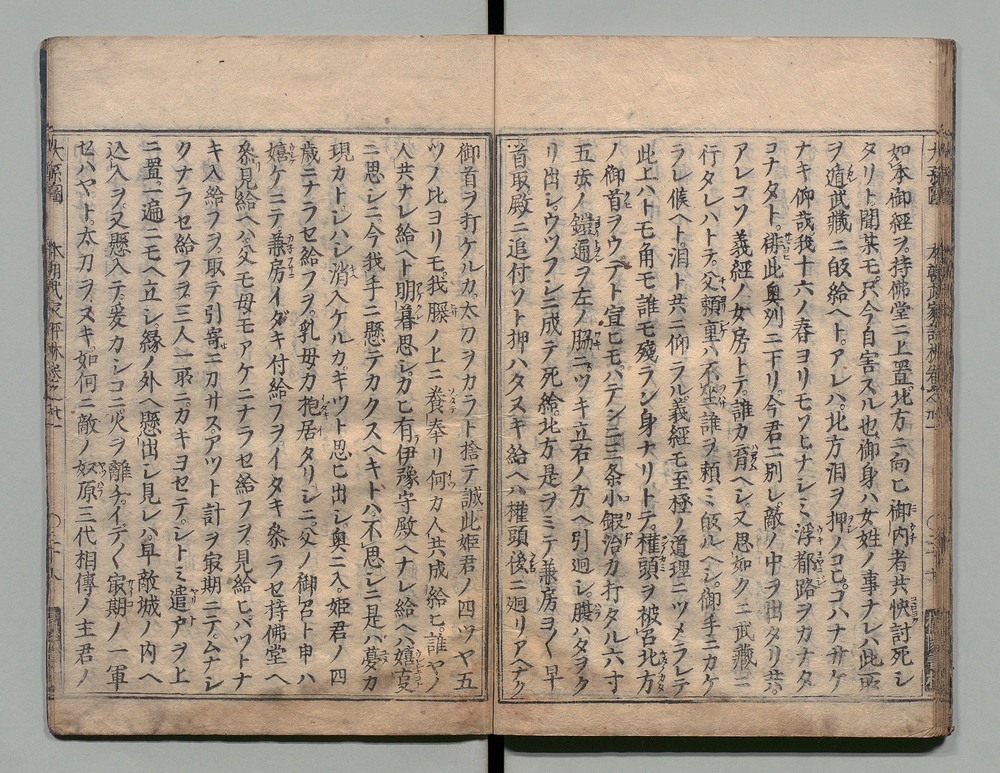 如本御經ヲ。持佛堂ニ上置。北方ニ向ヒ御内者共怏討死シ
タリト。聞某モ只今自害スル也。御身ハ女姓ノ事ナレハ此所
ヲ遁武藏ニ皈給ヘト。アレハ。北方泪ヲ押ノコヒ。コハナサケ
ナキ仰哉我十六ノ春ヨリモツヒナレシミ浮都路ヲカナタ
コナタト。徘此奥列ニ下リ。今君ニ別レ敵ノ中ヲ出タリ共。
アレコソ義經ノ女房トテ。誰カ育ヘシ。又思如クニ武藏ニ
行タレハトテ。父頼重ハ不坐誰ヲ頼ミ皈ルヘシ。御手ニカケ
ラレ候ヘト。泪ト共ニ仰ラル。義經モ至極ノ道理ニツメラレテ
此上ハトモ角モ誰モ殘ラン身ナリトテ。權頭ヲ被召北方
ノ御首ヲウテト宣ヒモハテンニ三条小鍜治カ打タル六寸
五歩ノ鎧通ヲ左ノ脇ニ。ツキ立右ノ方ヘ引廻シ。膓ハタヲク
リ出シ。ウツフシニ成テ死給。北方是ヲミテ兼房ヨク早
首取殿ニ追付ソト押ハタヌキ給ヘハ權頭後ニ廻リアヘナク
御首ヲ打ケルカ。太刀ヲカラト捨テ誠此姫君ノ四ツヤ五
ツノ比ヨリモ。我膝ノ上ニ養奉リ何カ人共成給ヒ。誰ヤノ
人共ナレ給ヘト明暮思シカヒ有伊豫守殿ヘナレ給ヘハ嬉夏
ニ思シニ。今我手ニ懸テカクスヘキトハ不思シニ是ハ夢カ
現カトシハシ消入ケルカ。キツト思ヒ出シ奥ニ入。姫君ノ四
歳ニナラセ給フヲ。乳母カ抱居タリシニ。父ノ御召ト申ハ
嬉ケニテ兼房イダキ付給フヲイタキ參ラセ持佛堂ヘ
參見給ヘハ父モ母モアケニナラセ給フヲ。見給ヒハツトナ
キ入給フヲ。取テ引寄ニカサスアツト計ヲ寂期ニテ。ムナシ
クナラセ給フヲ。三人一所ニ。カキヨセテ。シトミ遣戸ヲ上
ニ置。一遍ニモヘ立シ縁ノ外ヘ懸出シ見レハ。早敵城ノ内ヘ
込入ヲ。又懸入テ。爰カシコニ火ヲ離チ。イデく寂期ノ一軍
セハヤト。太刀ヲヌキ。如何ニ敵ノ奴原三代相傳ノ主君ノ